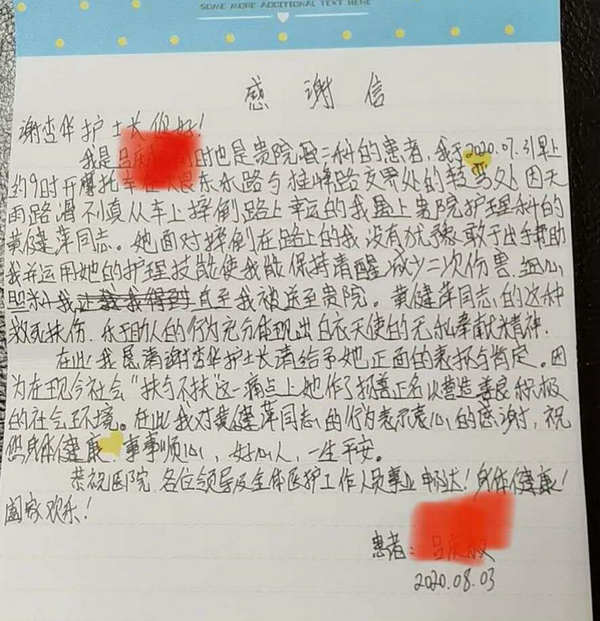 SOME MORE ADDITIONAL TEXT HERE
感谢信
谢杏华护士长你好!
我是 时也是贵院 二科的患者,我于2020.07.31早上
约9时开摩托车在 东永路与桂峰路交界处的转弯处因天
雨路滑不慎从车上摔倒路上幸运的我遇上贵院护理科的
黄健萍同志。她面对摔倒在路上的我没有犹豫敢于出手帮助
我并运用她的护理技能使我能保持清醒减少二次伤害.细心
照料我 直至我被送至贵院。黄健萍同志的这种
救死扶伤.乐于助人的行为充分体现出白衣天使的无私奉献精神.
在此我恳请谢杏华护士长请给予她正面的表扬与肯定。因
为在现今社会“扶与不扶”这一痛点上她作了拐善正名以营造善良积极
的社会环境。在此我对黄健萍同志的行为表示衷心的感谢,祝
您身体健康.事事顺心,好心人,一生平安。
恭祝医院.各位领导及全体医护工作人员事业畅达!身体健康!
阖家欢乐!
患者:
2020.08.03